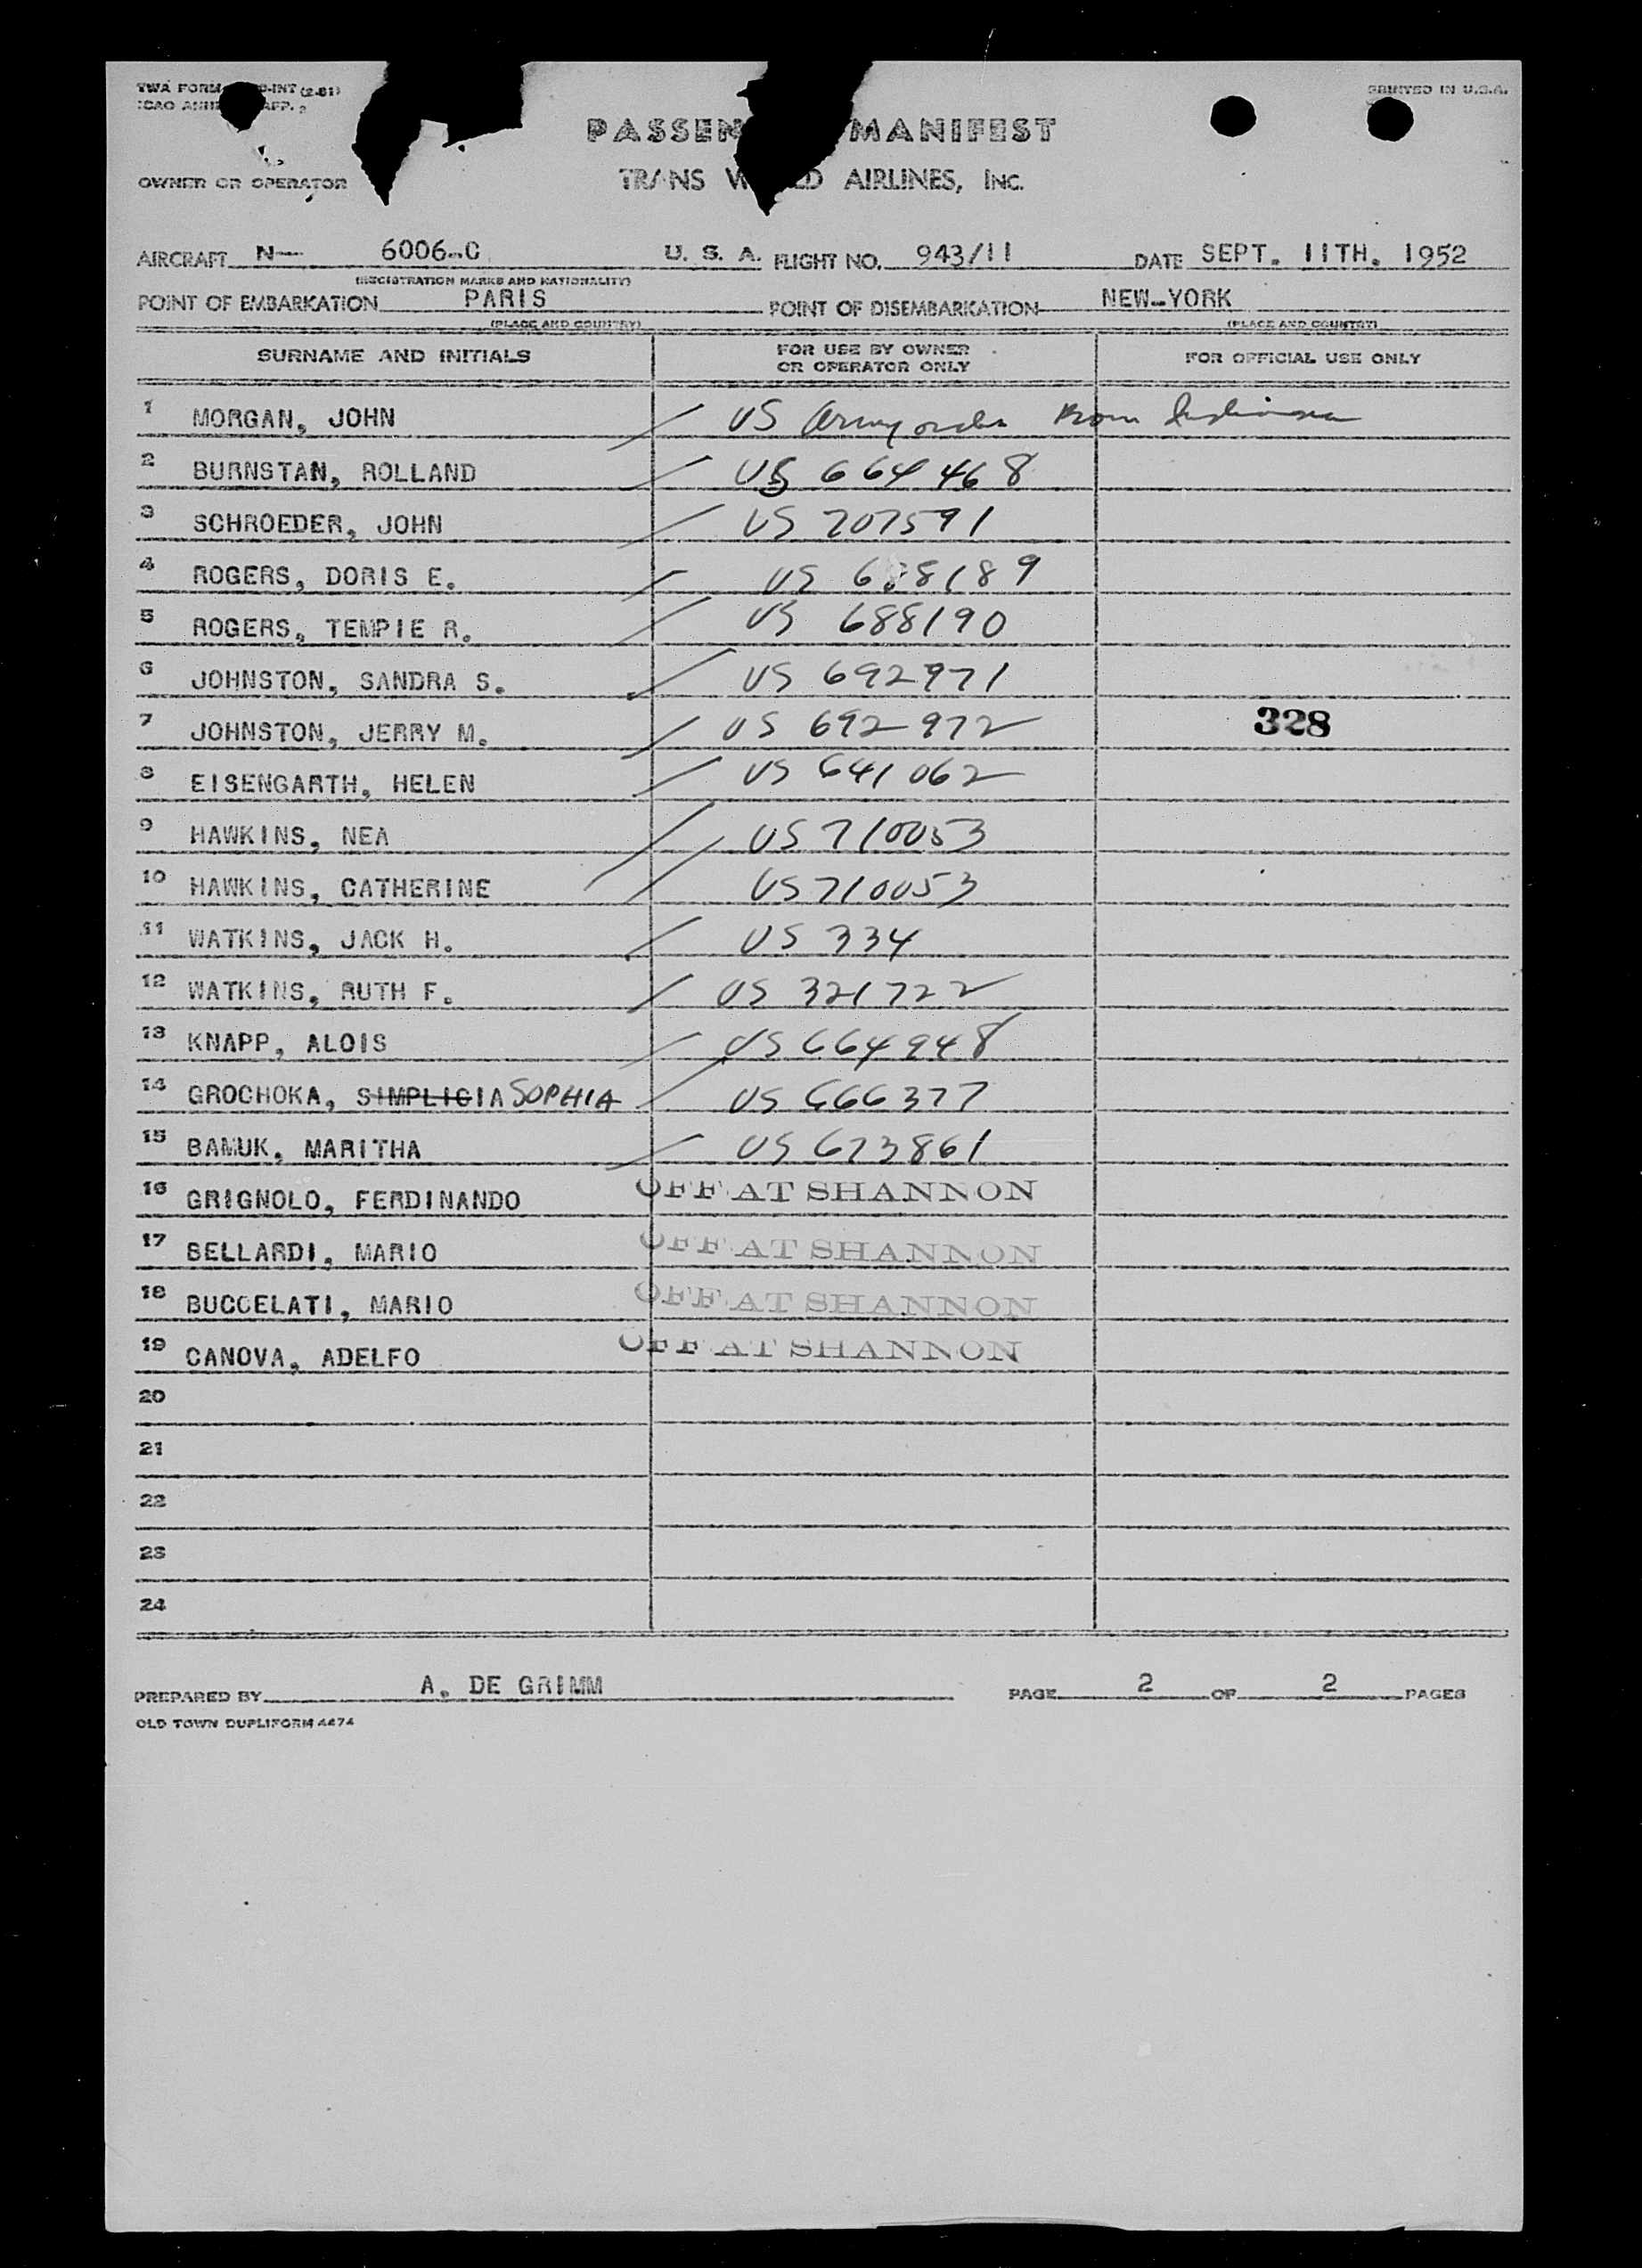 TWA FORM -INT (2-51)
ICAO APP.
PRINTED IN U.S.A.
PASSEN MANIFEST
TRANS W LD AIRLINES, INC.
OWNER OR OPERATOR
AIRCRAFT N— 6006-C U. S. A. FLIGHT NO. 943/11 DATE SEPT. 11TH. 1952
(REGISTRATION MARKS AND NATIONALITY)
POINT OF EMBARKATION PARIS POINT OF DISEMBARKATION NEW-YORK
(PLACE AND COUNTRY) (PLACE AND COUNTRY)
SURNAME AND INITIALS FOR USE BY OWNER OR OPERATOR ONLY FOR OFFICIAL USE ONLY
1 MORGAN, JOHN US Army orders Born
2 BURNSTAN, ROLLAND US 664468
3 SCHROEDER, JOHN US 707591
4 ROGERS, DORIS E. US 688189
5 ROGERS, TEMPIE R. US 688190
6 JOHNSTON, SANDRA S. US 692971
7 JOHNSTON, JERRY M. US 692972 328
8 EISENGARTH, HELEN US 641062
9 HAWKINS, NEA US 710053
10 HAWKINS, CATHERINE US 710053
11 WATKINS, JACK H. US 334
12 WATKINS, RUTH F. US 321722
13 KNAPP, ALOIS US 664948
14 GROCHOKA, SIMPLICIA SOPHIA US 666377
15 BAMUK, MARITHA US 673861
16 GRIGNOLO, FERDINANDO OFF AT SHANNON
17 BELLARDI, MARIO OFF AT SHANNON
18 BUCCELATI, MARIO OFF AT SHANNON
19 CANOVA, ADELFO OFF AT SHANNON
20
21
22
23
24
PREPARED BY A. DE GRIMM PAGE 2 OF 2 PAGES
OLD TOWN DUPLIFORM 4474